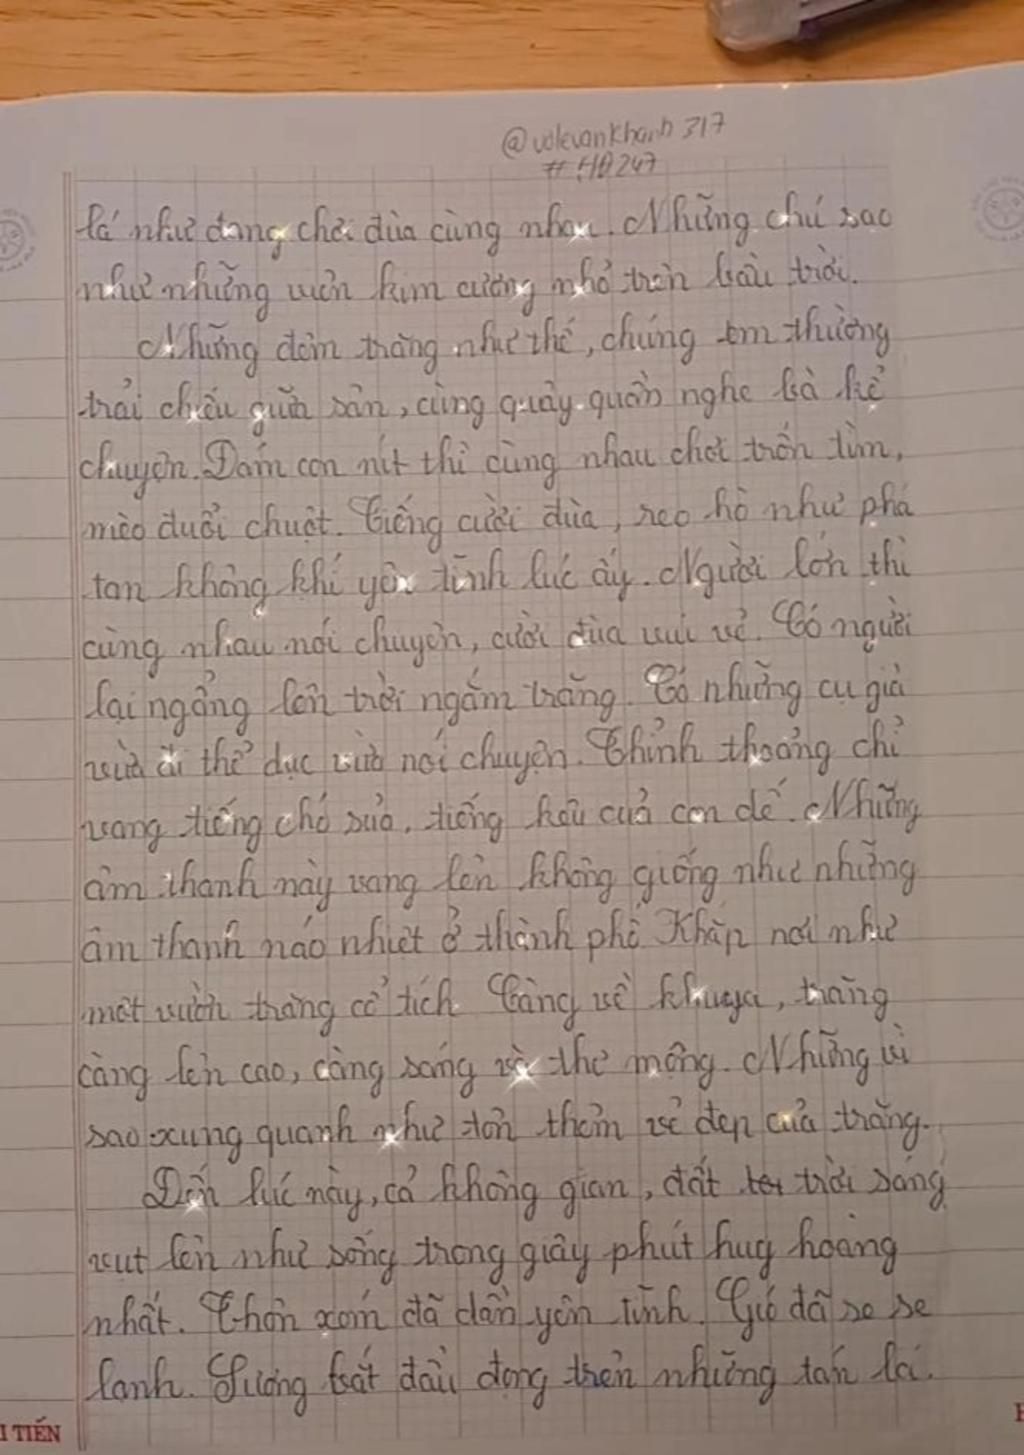 @volevankhanh317
#HĐ247
lá như đang chơi đùa cùng nhau. Những chú sao
như những viên kim cương nhỏ trên bầu trời.
Những đêm trăng như thế, chúng em thường
trải chiếu giữa sân, cùng quây quần nghe bà kể
chuyện. Đám con nít thì cùng nhau chơi trốn tìm,
mèo đuổi chuột. Tiếng cười đùa, reo hò như phá
tan không khí yên tĩnh lúc ấy. Người lớn thì
cùng nhau nói chuyện, cười đùa vui vẻ. Có người
lại ngẩng lên trời ngắm trăng. Có những cụ già
vừa đi thể dục vừa nói chuyện. Thỉnh thoảng chỉ
vang tiếng chó sủa, tiếng kêu của con dế. Những
âm thanh này vang lên không giống như những
âm thanh náo nhiệt ở thành phố Khắp nơi như
một vườn trăng cổ tích Càng về khuya, trăng
càng lên cao, càng sáng và thơ mộng. Những vì
sao xung quanh như tôn thêm vẻ đẹp của trăng.
Đến lúc này, cả không gian, đất trời sáng
vụt lên như sống trong giây phút huy hoàng
nhất. Thôn xóm đã dần yên tĩnh. Gió đã se se
lạnh. Sương bắt đầu đọng trên những tán lá.
I TIẾN